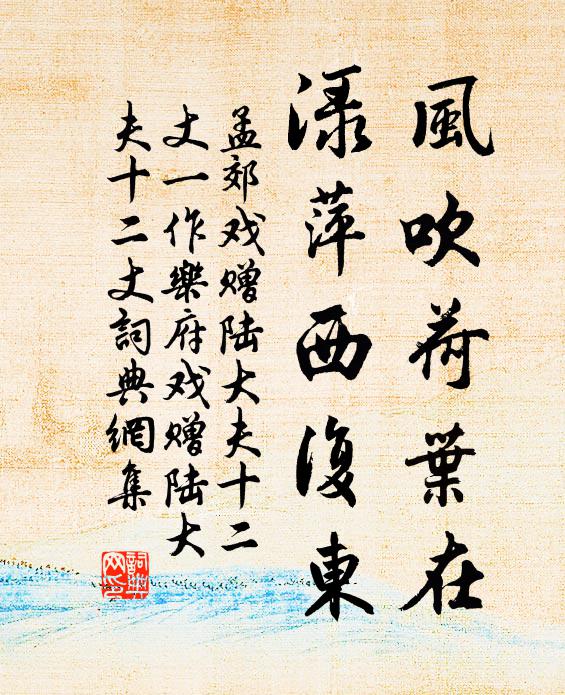 風吹荷葉在
渌萍西復東
孟郊戏赠陆大夫十二
丈一作樂府戏赠陆大
夫十二丈詞典網集
詞典
网